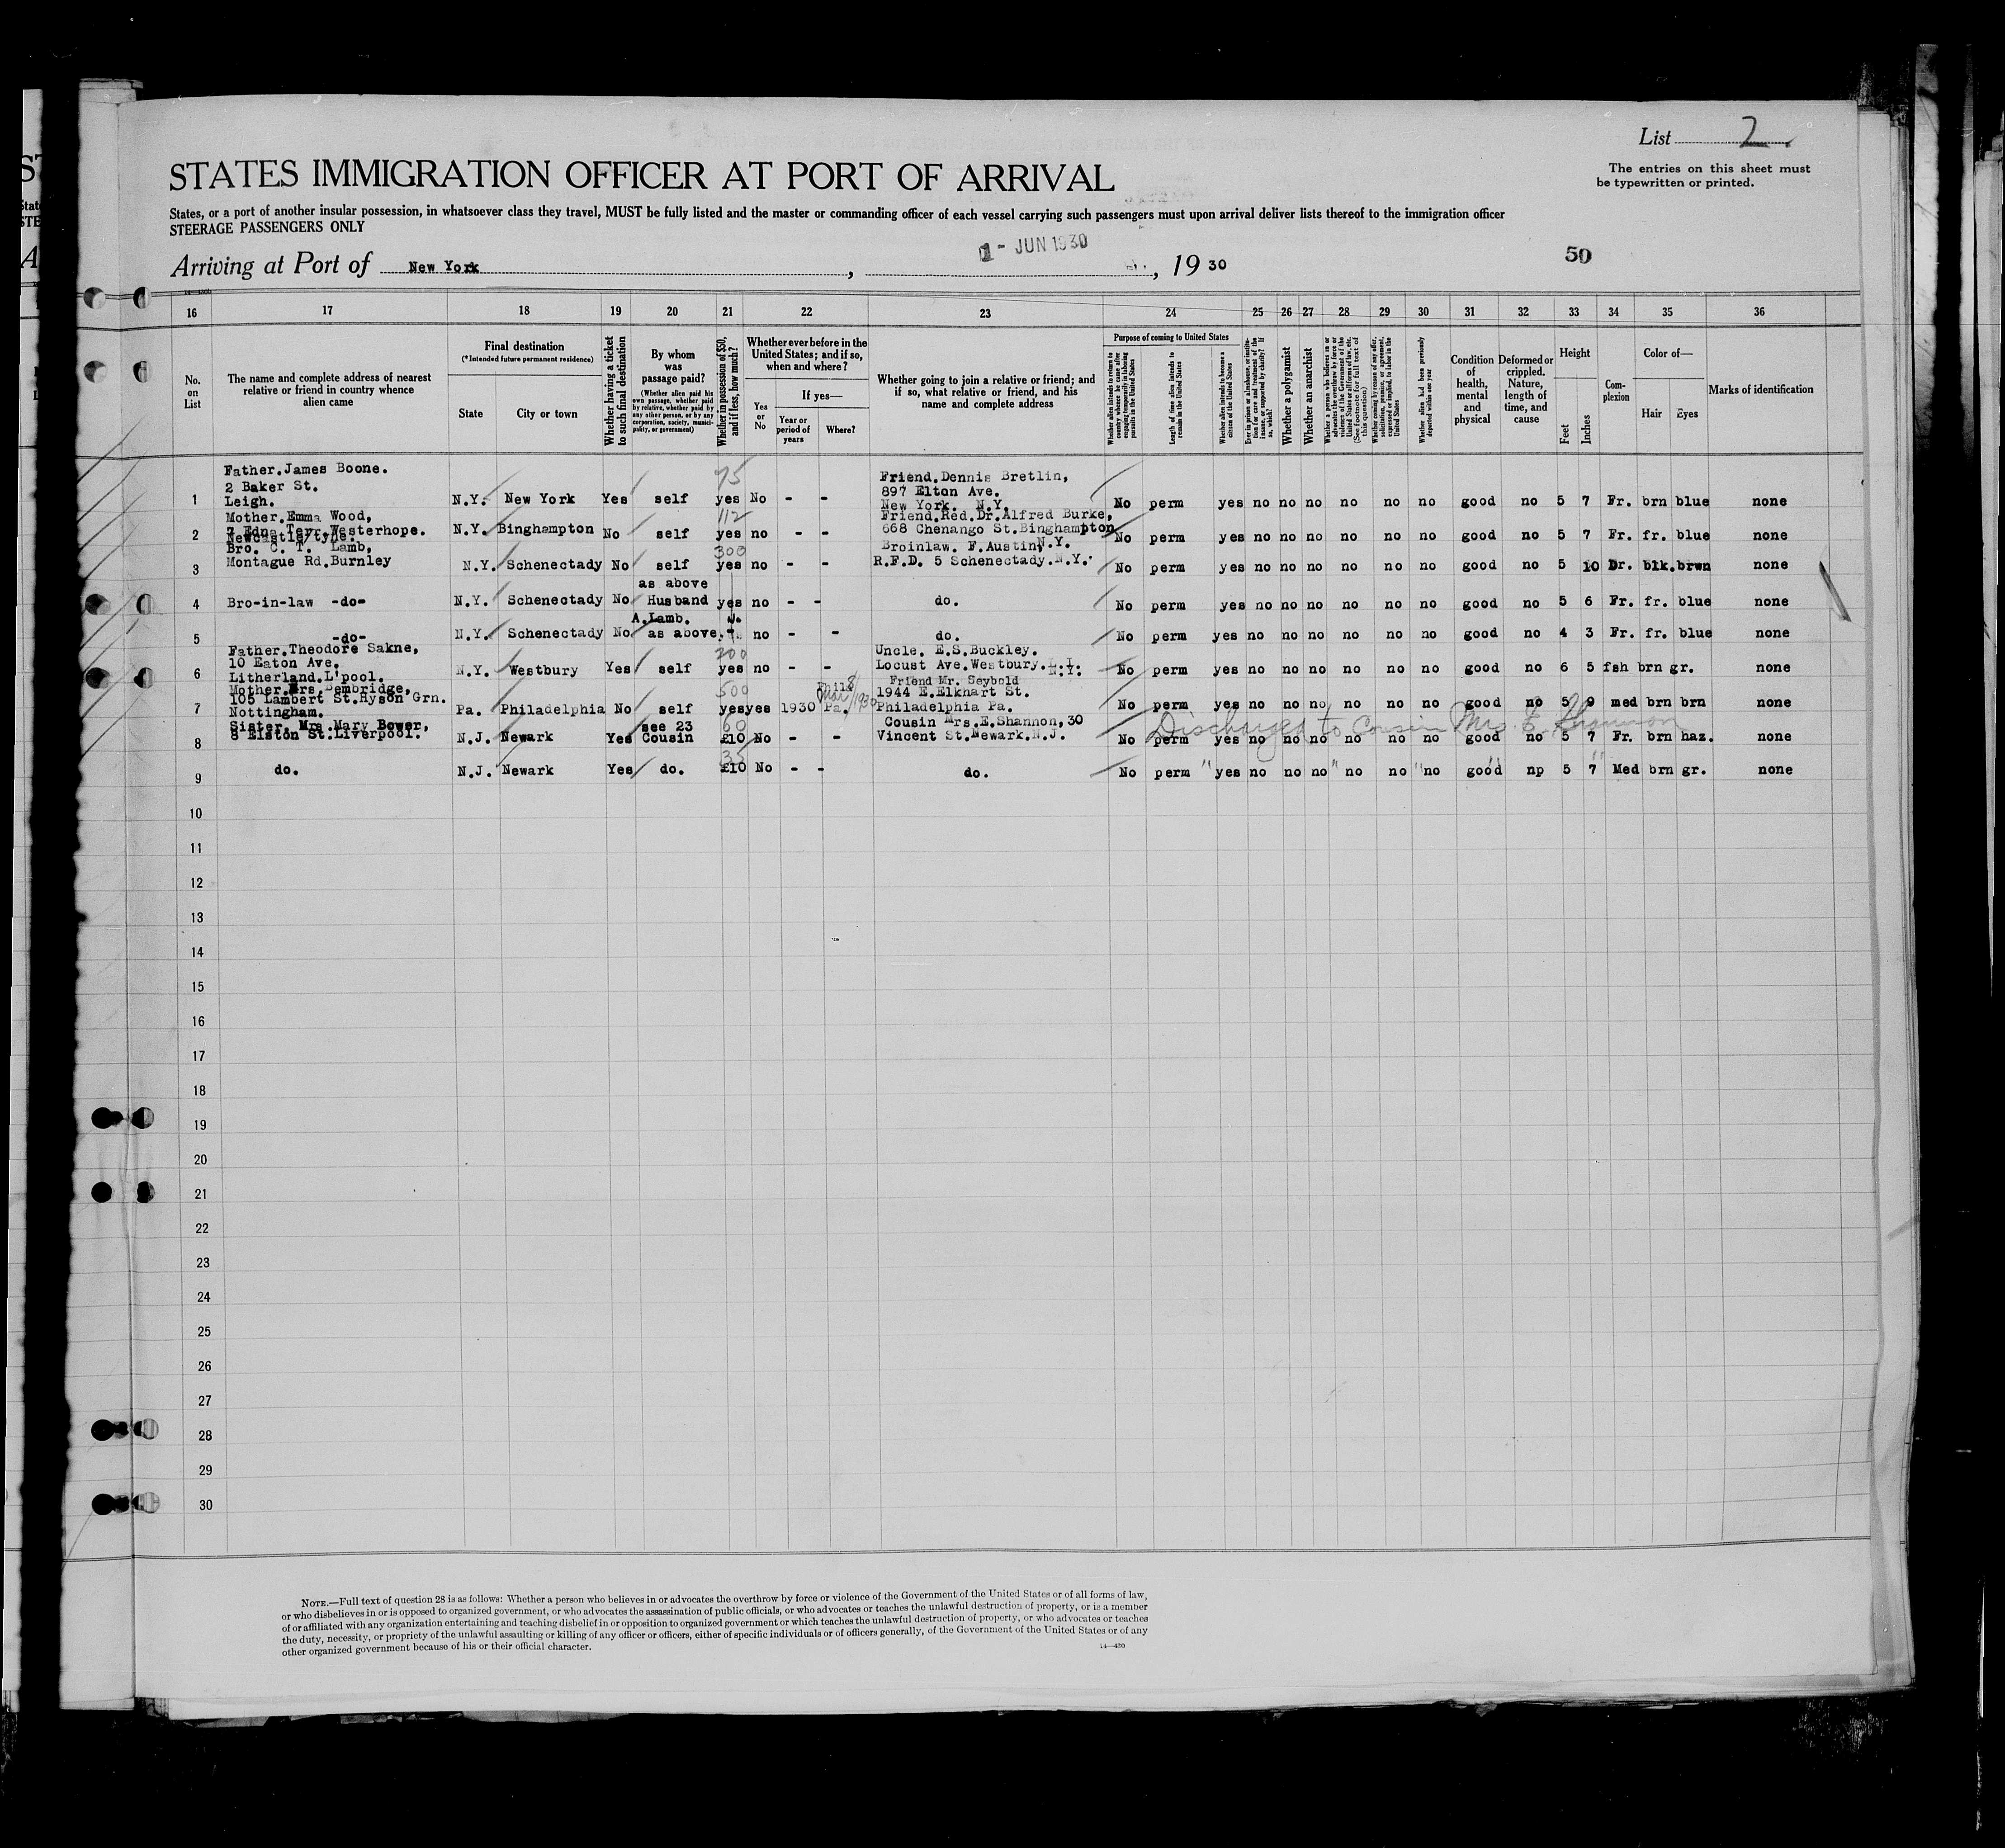 List 2
The entries on this sheet must
be typewritten or printed.
STATES IMMIGRATION OFFICER AT PORT OF ARRIVAL
States, or a port of another insular possession, in whatsoever class they travel, MUST be fully listed and the master or commanding officer of each vessel carrying such passengers must upon arrival deliver lists thereof to the immigration officer
STEERAGE PASSENGERS ONLY
Arriving at Port of New York, 1 - JUN 1930, 19 30
50
16 17 18 19 20 21 22 23 24 25 26 27 28 29 30 31 32 33 34 35 36
No. on List
The name and complete address of nearest relative or friend in country whence alien came
Final destination
(*Intended future permanent residence)
State
City or town
Whether having a ticket to such final destination
By whom was passage paid?
(Whether alien paid his own passage, whether paid by relative, whether paid by any other person, or by any corporation, society, municipality, or government)
Whether in possession of $50, and if less, how much?
Whether ever before in the United States; and if so, when and where?
Yes or No
If yes—
Year or period of years
Where?
Whether going to join a relative or friend; and if so, what relative or friend, and his name and complete address
Purpose of coming to United States
Whether alien intends to return to country whence he came after engaging temporarily in laboring pursuits in the United States
Length of time alien intends to remain in the United States
Whether alien intends to become a citizen of the United States
Ever in prison or almshouse, or institution for care and treatment of the insane, or supported by charity? If so, which?
Whether a polygamist
Whether an anarchist
Whether a person who believes in or advocates the overthrow by force or violence of the Government of the United States or all forms of law, etc. (See footnote for full text of this question)
Whether coming by reason of any offer, solicitation, promise, or agreement, expressed or implied, to labor in the United States
Whether alien had been previously deported within one year
Condition of health, mental and physical
Deformed or crippled. Nature, length of time, and cause
Height
Feet
Inches
Complexion
Color of—
Hair
Eyes
Marks of identification
Father.James Boone.
2 Baker St.
Leigh.
75
Friend.Dennis Bretlin,
897 Elton Ave.
New York. N.Y.
1 N.Y. New York Yes self yes No - - No perm yes no no no no no no good no 5 7 Fr. brn blue none
Mother.Emma Wood,
7 Edna Terr.Westerhope.
Newcastle/tyne.
112
Friend.Red.Dr.Alfred Burke,
668 Chenango St.Binghampton
N.Y.
2 N.Y. Binghampton No self yes no - - No perm yes no no no no no no good no 5 7 Fr. fr. blue none
Bro. C. T. Lamb,
Montague Rd.Burnley
300
Broinlaw. F.Austin,
R.F.D. 5 Schenectady.N.Y.
3 N.Y. Schenectady No self yes no - - No perm yes no no no no no no good no 5 10 Dr. blk.brwn none
as above
4 Bro-in-law -do- N.Y. Schenectady No Husband yes no - - do. No perm yes no no no no no no good no 5 6 Fr. fr. blue none
A.Lamb.
5 -do- N.Y. Schenectady No as above. no - - do. No perm yes no no no no no no good no 4 3 Fr. fr. blue none
Father.Theodore Sakne,
10 Eaton Ave.
Litherland.L'pool.
200
Uncle. E.S.Buckley.
Locust Ave.Westbury.L.I.
N.Y.
6 N.Y. Westbury Yes self yes no - - No perm yes no no no no no no good no 6 5 fsh brn gr. none
Mother.Mrs.Bembridge,
105 Lambert St.Hyson Grn.
Nottingham.
500
Phila
Friend Mr. Seybold
1944 E.Elkhart St.
Philadelphia Pa.
7 Pa. Philadelphia No self yes yes 1930 Pa. No perm yes no no no no no no good no 5 9 med brn brn none
Sister. Mrs.Mary Bower,
8 Elston St.Liverpool.
see 23
60
Cousin Mrs.E.Shannon,30
Vincent St.Newark.N.J.
Discharged to Cousin Mrs. E. Shannon
8 N.J. Newark Yes Cousin £10 No - - No perm yes no no no no no no good no 5 7 Fr. brn haz. none
35
9 do. N.J. Newark Yes do. £10 No - - do. No perm " yes no no no " no no " no good np 5 7 Med brn gr. none
10
11
12
13
14
15
16
17
18
19
20
21
22
23
24
25
26
27
28
29
30
NOTE.—Full text of question 28 is as follows: Whether a person who believes in or advocates the overthrow by force or violence of the Government of the United States or of all forms of law,
or who disbelieves in or is opposed to organized government, or who advocates the assassination of public officials, or who advocates or teaches the unlawful destruction of property, or is a member
of or affiliated with any organization entertaining and teaching disbelief in or opposition to organized government or which teaches the unlawful destruction of property, or who advocates or teaches
the duty, necessity, or propriety of the unlawful assaulting or killing of any officer or officers, either of specific individuals or of officers generally, of the Government of the United States or of any
other organized government because of his or their official character.
14—430